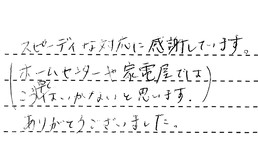 スピーディな対応に感謝しています。
(ホームセンターや家電屋では
こうはいかないと思います.)
ありがとうございました。